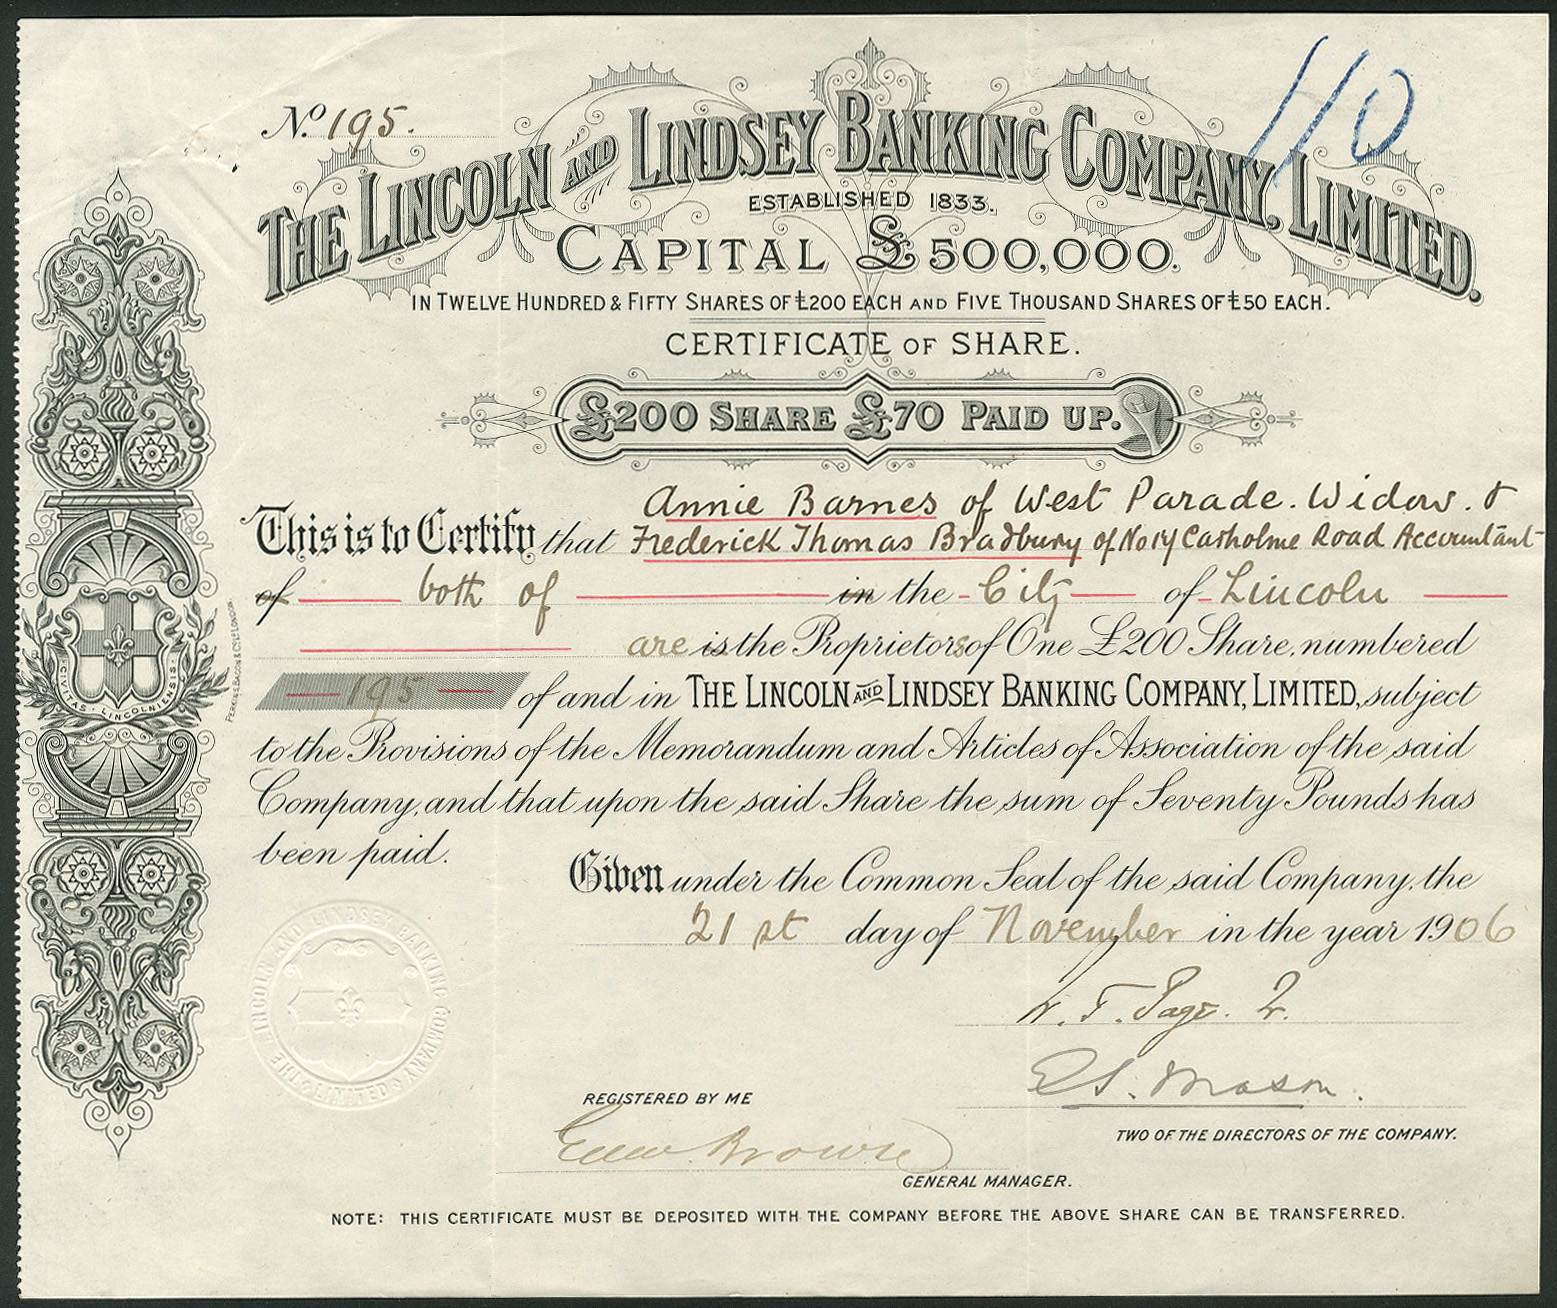 No 195.
110
THE LINCOLN AND LINDSEY BANKING COMPANY, LIMITED.
ESTABLISHED 1833.
CAPITAL £500,000.
IN TWELVE HUNDRED & FIFTY SHARES OF £200 EACH AND FIVE THOUSAND SHARES OF £50 EACH.
CERTIFICATE OF SHARE.
£200 SHARE £70 PAID UP.
Annie Barnes of West Parade. Widow. &
This is to Certify that Frederick Thomas Bradbury of No 14 Carholme Road Accountant
of both of in the City of Lincoln
are is the Proprietors of One £200 Share, numbered
195 of and in THE LINCOLN AND LINDSEY BANKING COMPANY, LIMITED, subject
to the Provisions of the Memorandum and Articles of Association of the said
Company, and that upon the said Share the sum of Seventy Pounds has
been paid.
Given under the Common Seal of the said Company, the
21st day of November in the year 1906
W. T. Page. Jr.
Mason.
TWO OF THE DIRECTORS OF THE COMPANY.
REGISTERED BY ME
Browne
GENERAL MANAGER.
NOTE: THIS CERTIFICATE MUST BE DEPOSITED WITH THE COMPANY BEFORE THE ABOVE SHARE CAN BE TRANSFERRED.
CIVITAS · LINCOLNIENSIS ·
PERKINS, BACON & CO LD LONDON.
THE LINCOLN AND LINDSEY BANKING COMPANY LIMITED